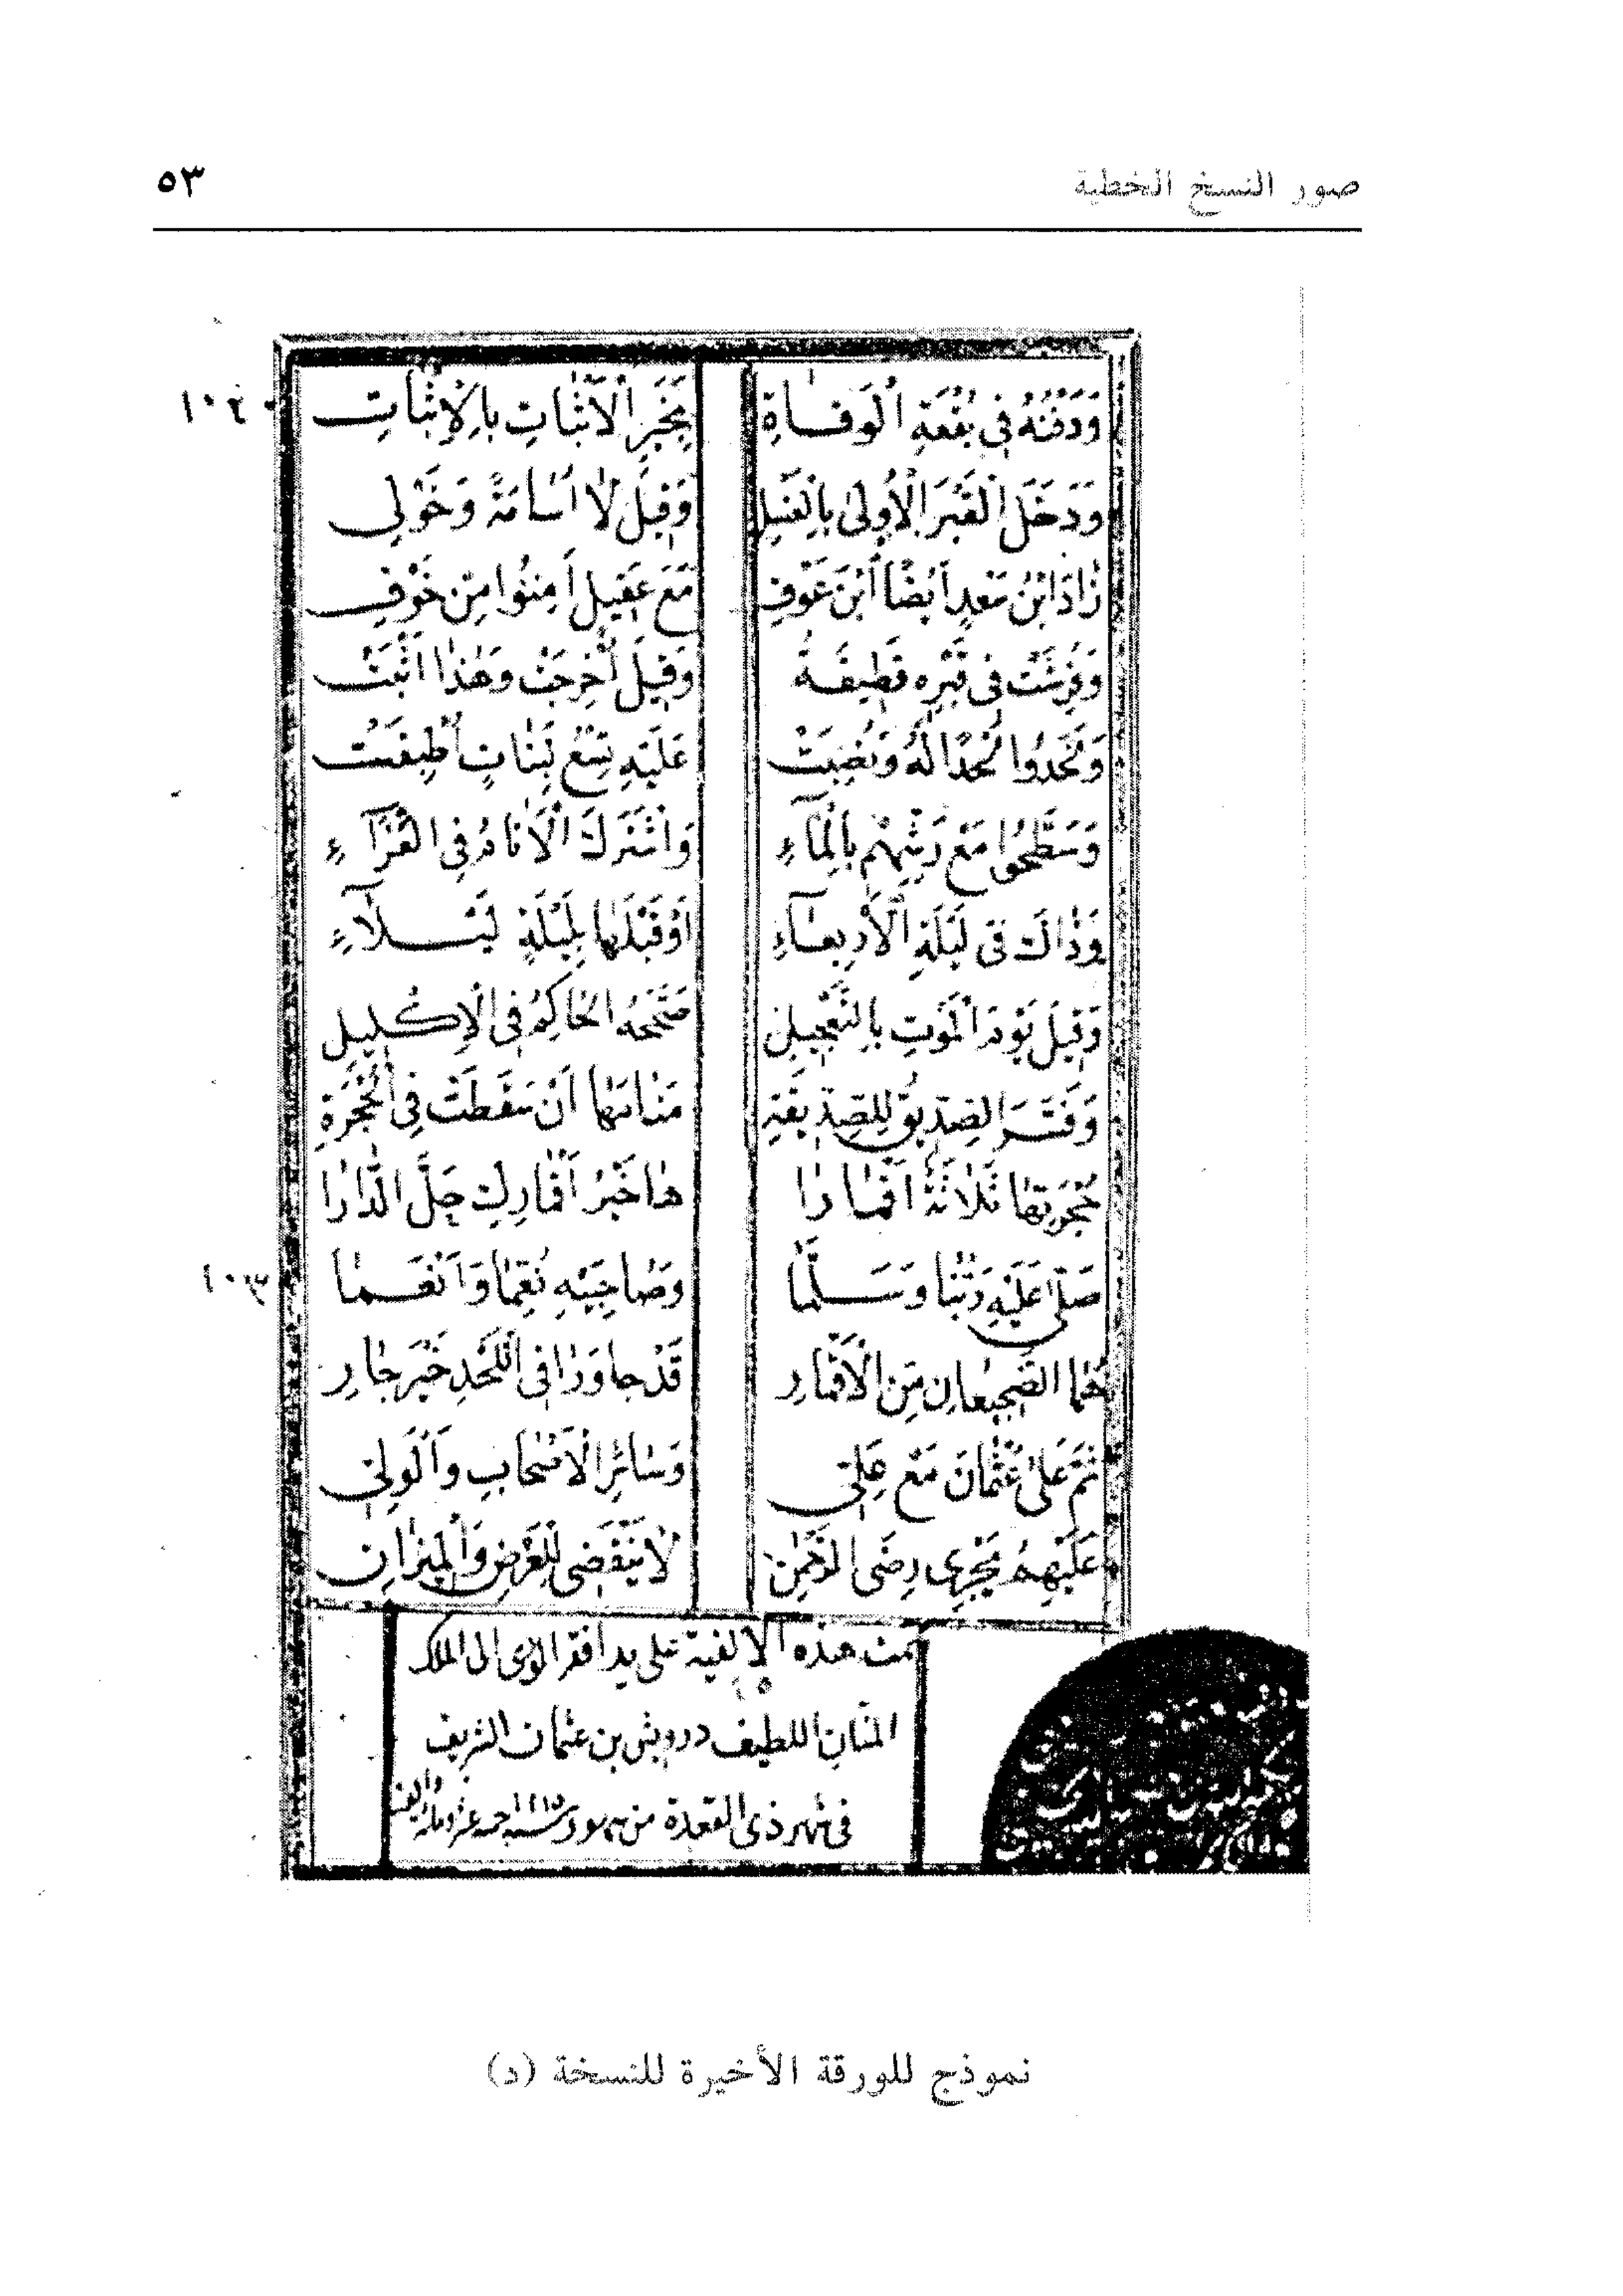 صور النسخ الخطية ٥٣
وَدَفْنُهُ فِي بُقْعَةِ الْوَفَاةِ بِخَبَرِ الْأَثْبَاتِ بِالْإِثْبَاتِ
وَدَخَلَ الْقَبْرَ الْأُولَى بِالْغُسْلِ وَقِيلَ لَا أُسَامَةٌ وَخَوْلِي
زَادَ ابْنُ سَعْدٍ أَيْضًا ابْنَ عَوْفِ مَعَ عَقِيلٍ أَمِنُوا مِنْ خَوْفِ
وَفُرِشَتْ فِي قَبْرِهِ قَطِيفَةٌ وَقِيلَ أُخْرِجَتْ وَهٰذَا أَثْبَتُ
وَلَحَدُوا لَحْدًا لَهُ وَنُصِبَتْ عَلَيْهِ تِسْعُ لَبِنَاتٍ أُطْبِقَتْ
وَسَطَّحُوا مَعْ رَشِّهِمْ بِالْمَآءِ وَاشْتَرَكَ الْأَنَامُ فِي الْعَزَآءِ
وَذَاكَ فِي لَيْلَةِ الْأَرْبِعَآءِ أَوْ قَبْلَهَا بِلَيْلَةٍ لَيْلَآءِ
وَقِيلَ يَوْمَ الْمَوْتِ بِالتَّعْجِيلِ صَحَّحَهُ الْحَاكِمُ فِي الْإِكْلِيلِ
وَفَسَّرَ الصِّدِّيقُ لِلصِّدِّيقَةِ مَنَامَهَا أَنْ سَقَطَتْ فِي الْحُجْرَةِ
حُجْرَتِهَا ثَلَاثَةٌ أَقْمَارَا هَا خَيْرُ أَقْمَارِكِ حَلَّ الدَّارَا
صَلَّى عَلَيْهِ رَبُّنَا وَسَلَّمَا وَصَاحِبَيْهِ نُعِّمَا وَأَنْعَمَا
هُمَا الضَّجِيعَانِ مِنَ الْأَقْمَارِ قَدْ جَاوَرَا فِي اللَّحْدِ خَيْرَ جَارِ
ثُمَّ عَلَى عُثْمَانَ مَعْ عَلِيِّ وَسَائِرِ الْأَصْحَابِ وَالْوَلِيِّ
عَلَيْهِمُ يَجْرِي رِضَى الرَّحْمٰنِ لَا يَنْقَضِي لِلْعَرْضِ وَالْمِيزَانِ
تمت هذه الالفية على يد افقر الورى الى الملك
المنان اللطيف درويش بن عثمان الشريف
في شهر ذي القعدة من شهور سنة ١١١٥ خمسة عشر ومائة والف
نموذج للورقة الأخيرة للنسخة (د)